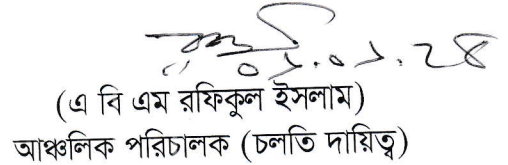 ০১.০১.২৪
(এ বি এম রফিকুল ইসলাম)
আঞ্চলিক পরিচালক (চলতি দায়িত্ব)